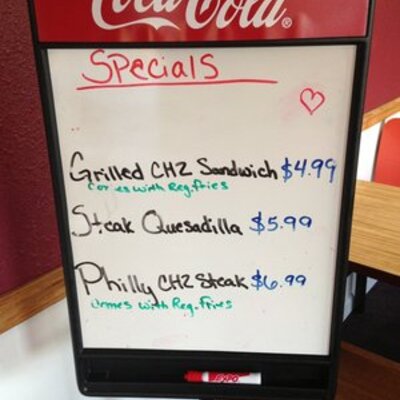 Coca-Cola®
Specials
Grilled CHZ Sandwich $4.99
Comes with Reg. Fries
Steak Quesadilla $5.99
Philly CHZ Steak $6.99
Comes with Reg. Fries
EXPO